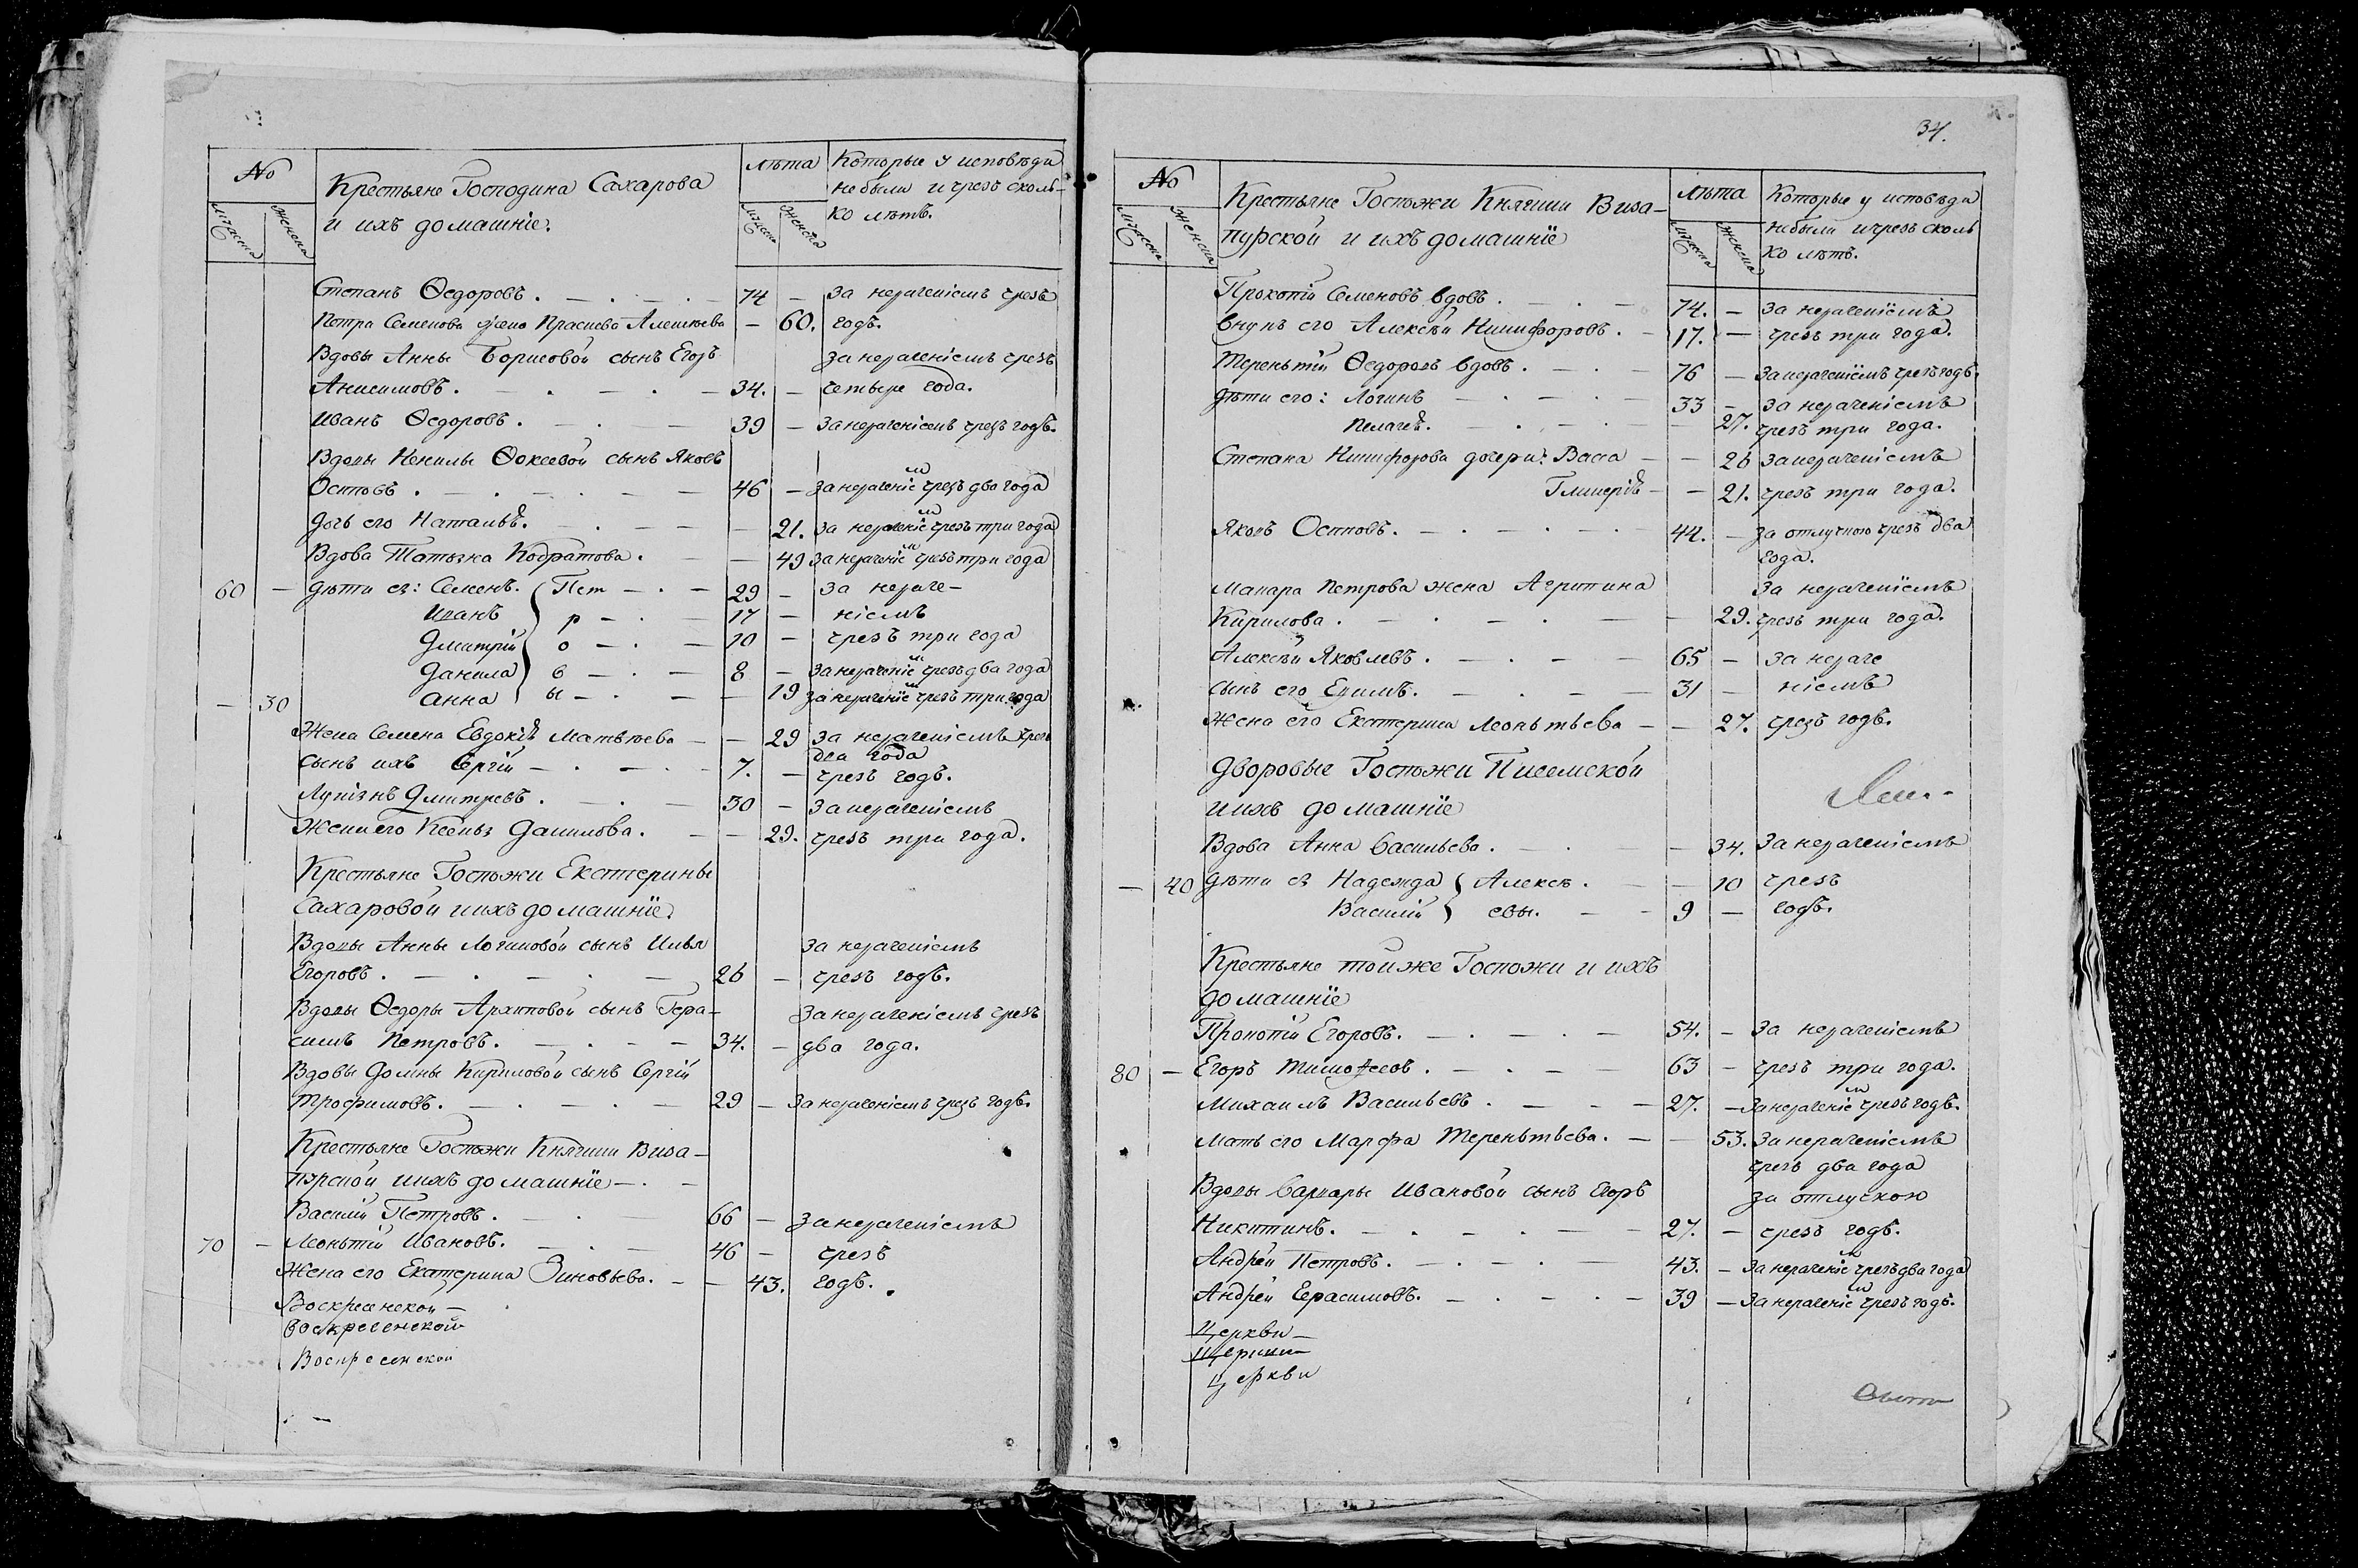 № Крестьяне Господина Сахарова лѣта Которые у исповѣди
и ихъ домашніе. небыли и чрезъ сколь-
мужеска женска мужеска женска ко лѣтъ.
Степанъ Ѳедоровъ. 74 — За нераченіемъ чрезъ
Петра Семенова жена Алексѣева — 60. годъ.
Вдовы Анны Борисовой сынъ Егоръ За нераченіемъ чрезъ
Анисимовъ. 34. — четыре года.
Иванъ Ѳедоровъ. 39 — За нераченіемъ чрезъ годъ.
Вдовы Ненилы Ѳокеевой сынъ Яковъ
Осиповъ. 46 — За нераченіемъ чрезъ два года
дочь его Наталья. — 21. За нераченіемъ чрезъ три года
Вдова Татьяна Кодратова. — 49 За нераченіемъ чрезъ три года
60 — дѣти ея: Семенъ. Пет 29 — За нераче-
Иванъ р 17 — ніемъ
Дмитрій о 10 — чрезъ три года
Данила в 8 — За нераченіемъ чрезъ два года
— 30 Анна ы — 19 За нераченіемъ чрезъ три года
Жена Семена Евдокія Матвѣева — 29 За нераченіемъ чрезъ
два года
сынъ ихъ Сергій 7. — чрезъ годъ.
Лукіянъ Дмитревъ. 30 — За нераченіемъ
Жена его Ксенья Данилова. — 29. чрезъ три года.
Крестьяне Госпожи Екатерины
Сахаровой и ихъ домашніе
Вдовы Анны Логиновой сынъ Илья За нераченіемъ
Егоровъ. 26 — чрезъ годъ.
Вдовы Ѳедоры Архиповой сынъ Гера- За нераченіемъ чрезъ
симъ Петровъ. 34. — два года.
Вдовы Домны Кириловой сынъ Сергій
Трофимовъ. 29 — За нераченіемъ чрезъ годъ.
Крестьяне Госпожи Княгини Виза-
пурской и ихъ домашніе
Василій Петровъ. 66 — За нераченіемъ
70 — Леонтій Ивановъ. 46 — чрезъ
Жена его Екатерина Зиновьева. — 43. годъ.
Воскресенской —
Воскресенской
Воскресенской
34.
№ Крестьяне Госпожи Княгини Виза- лѣта Которые у исповѣди
пурской и ихъ домашніе небыли и чрезъ сколь
мужеска женска мужеска женска ко лѣтъ.
Прокопій Семеновъ вдовъ. 74. — За нераченіемъ
внукъ его Алексѣй Никифоровъ. 17. — чрезъ три года.
Терентій Ѳедоровъ вдовъ. 76 — За нераченіемъ чрезъ годъ.
дѣти его: Логинъ 33 — За нераченіемъ
Пелагея. — 27. чрезъ три года.
Степана Никифорова дочери: Васса — 26 За нераченіемъ
Гликерія — 21. чрезъ три года.
Яковъ Осиповъ. 44. — За отлучкою чрезъ два
года.
Макара Петрова жена Агрипина За нераченіемъ
Кирилова. — 29. чрезъ три года.
Алексѣй Яковлевъ. 65 — За нераче
сынъ его Ефимъ. 31 — ніемъ
Жена его Екатерина Леонтьева — 27. чрезъ годъ.
Дворовые Госпожи Писемской
и ихъ домашніе
Вдова Анна Васильева. — 34. За нераченіемъ
— 40 дѣти ея Надежда Алексѣ — 10 чрезъ
Василій евы. 9 — годъ.
Крестьяне той же Госпожи и ихъ
домашніе
Прокопій Егоровъ. 54. — За нераченіемъ
80 — Егоръ Тимофеевъ. 63 — чрезъ три года.
Михаилъ Васильевъ. 27. — За нераченіемъ чрезъ годъ.
Мать его Марфа Терентьева. — 53. За нераченіемъ
чрезъ два года
Вдовы Варвары Ивановой сынъ Егоръ за отлускою
Никитинъ. 27. — чрезъ годъ.
Андрей Петровъ. 43. — За нераченіемъ чрезъ два года
Андрей Герасимовъ. 39 — За нераченіемъ чрезъ годъ.
Церкви —
Церкви
Церкви